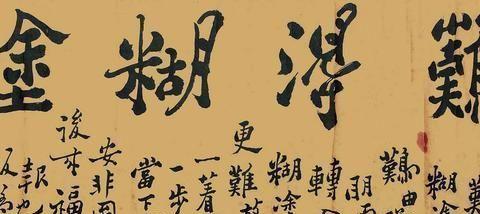 難得糊塗
難
糊塗
難由
明
轉入
糊塗
更難放
一著
一步
當下
安非圖
後來福